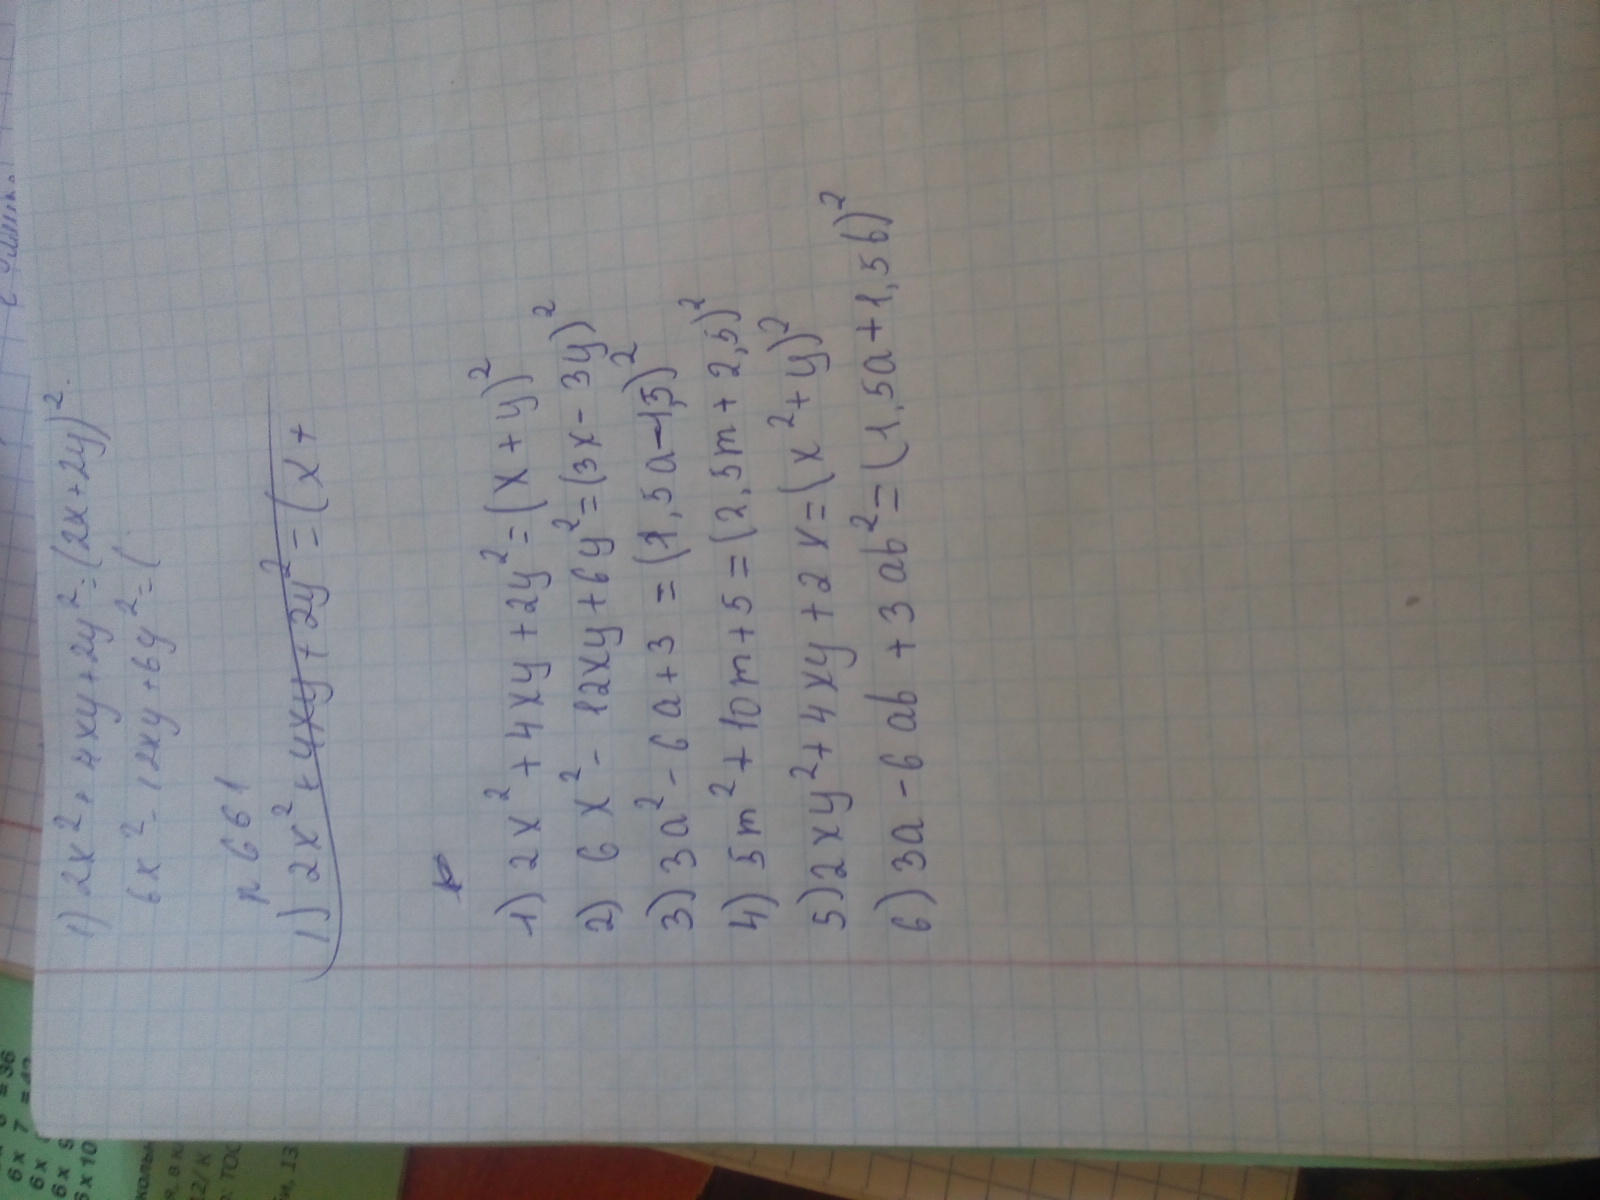 1) 2x² + 4xy + 2y² = (2x + 2y)².
6x² - 12xy + 6y² = (
n 661
1) 2x² + 4xy + 2y² = (x +
1) 2x² + 4xy + 2y² = (x + y)²
2) 6x² - 12xy + 6y² = (3x - 3y)²
3) 3a² - 6a + 3 = (1,5a - 1,5)²
4) 5m² + 10m + 5 = (2,5m + 2,5)²
5) 2xy² + 4xy + 2x = (x² + y)²
6) 3a - 6ab + 3ab² = (1,5a + 1,5b)²
6 x 7 =
6 x 10